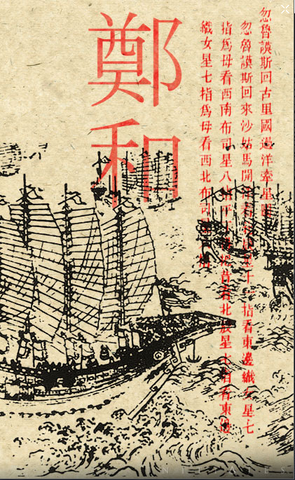 鄭和
忽魯謨斯回古里國過洋牽星
忽魯謨斯回來沙姑馬開洋 十一指看東邊織女星七
指爲母看西南布司星八指 看北辰星七指看東邊
織女星七指爲母看西北布